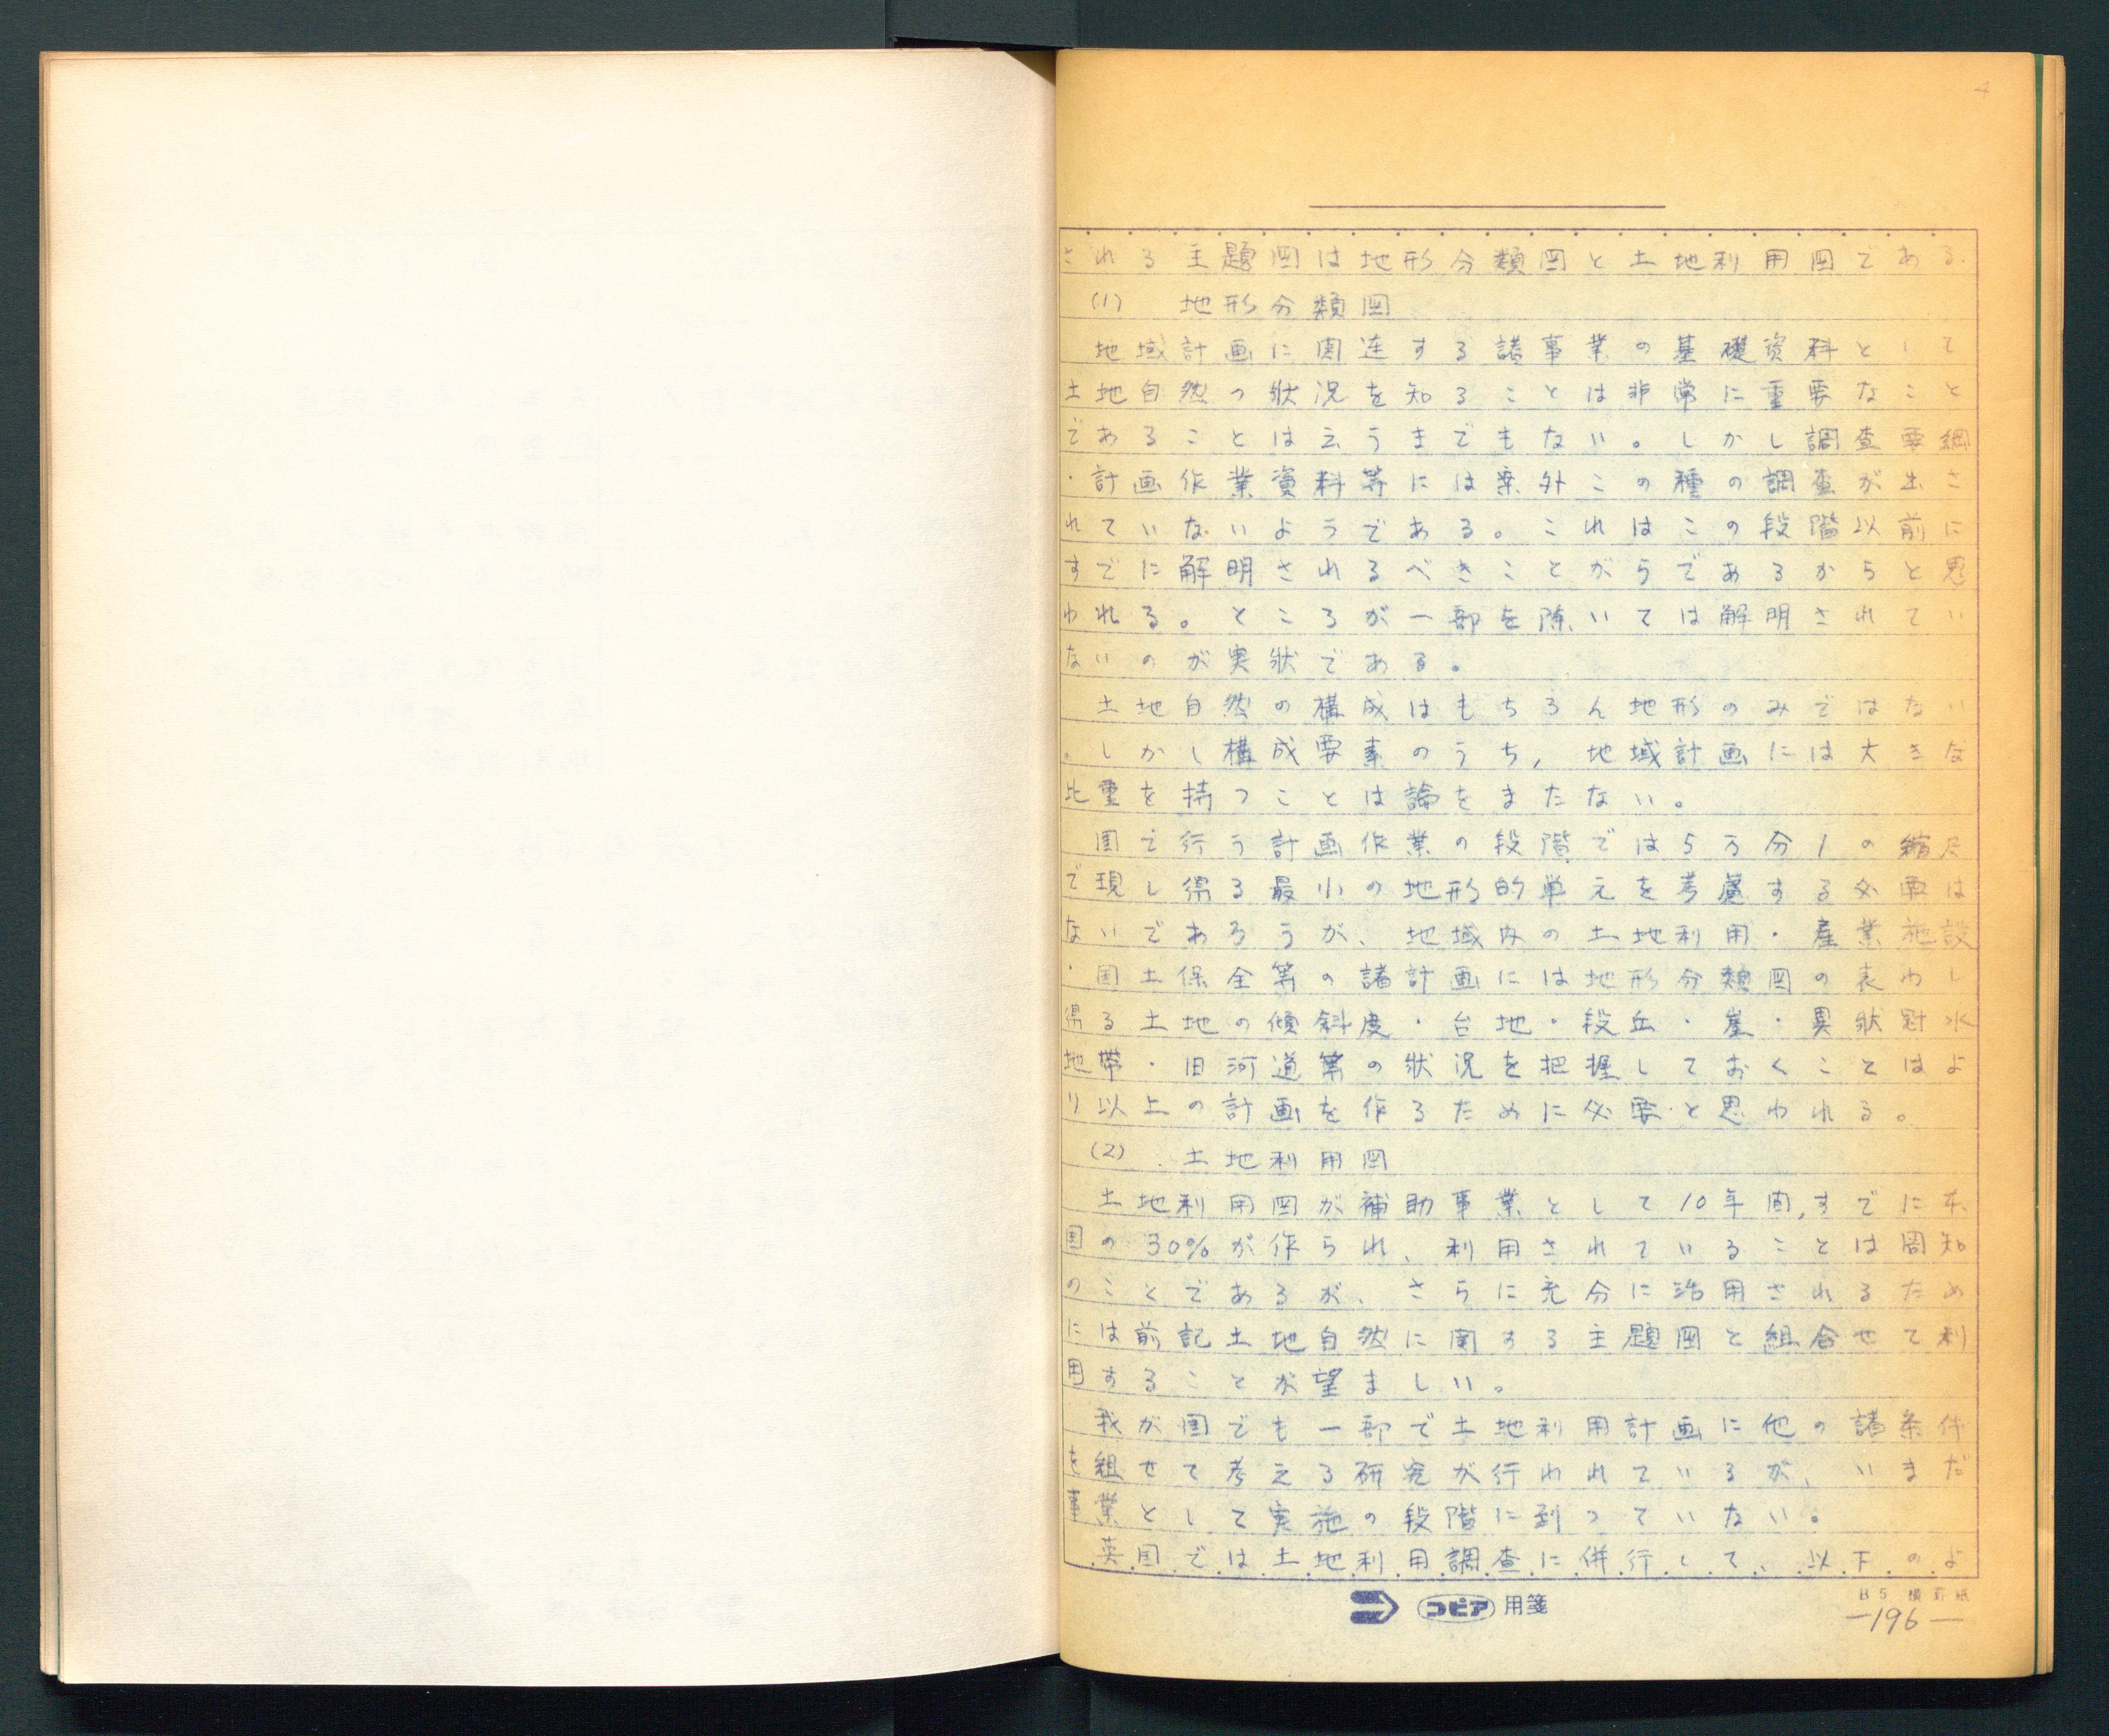 4
される主題図は地形分類図と土地利用図である.
(1) 地形分類図
地域計画に関連する諸事業の基礎資料として
土地自然の状況を知ることは非常に重要なこと
であることは云うまでもない。しかし調査要綱
・計画作業資料等には案外この種の調査が出さ
れていないようである。これはこの段階以前に
すでに解明されるべきことがらであるからと思
われる。ところが一部を除いては解明されてい
ないのが実状である。
土地自然の構成はもちろん地形のみではない
。しかし構成要素のうち,地域計画には大きな
比重を持つことは論をまたない。
国で行う計画作業の段階では5万分1の縮尺
で現し得る最小の地形的単元を考慮する必要は
ないであろうが、地域内の土地利用・産業施設
・国土保全等の諸計画には地形分類図の表わし
得る土地の傾斜度・台地・段丘・崖・異状冠水
地帯・旧河道等の状況を把握しておくことはよ
り以上の計画を作るために必要と思われる。
(2) 土地利用図
土地利用図が補助事業として10年間,すでに本
国の30%が作られ、利用されていることは周知
のことであるが、さらに充分に活用されるため
には前記土地自然に関する主題図と組合せて利
用することが望ましい。
我が国でも一部で土地利用計画に他の諸条件
を組せて考える研究が行われているが、いまだ
事業として実施の段階に到っていない。
英国では土地利用調査に併行して、以下のよ
コピア 用箋
B5 横罫紙
—196—